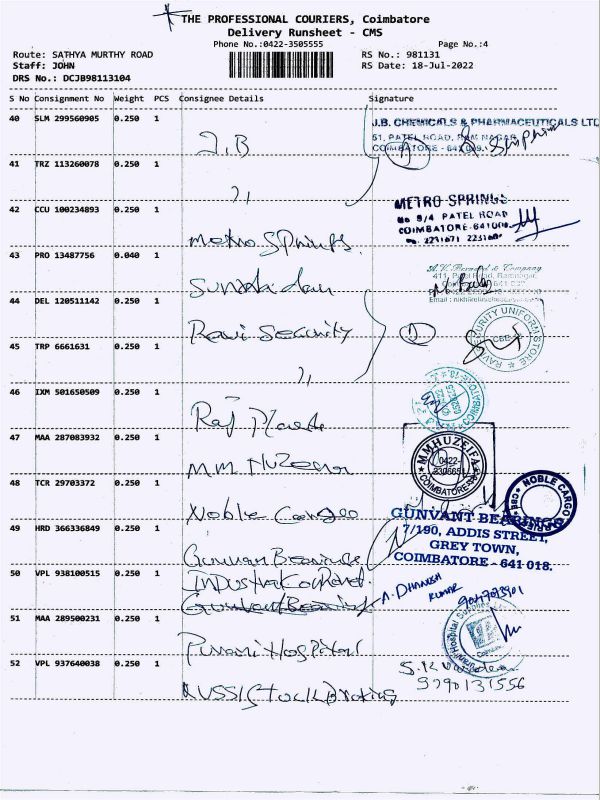 THE PROFESSIONAL COURIERS, Coimbatore
Delivery Runsheet - CMS
Phone No.:0422-3505555
Page No.:4
Route: SATHYA MURTHY ROAD
RS No.: 981131
Staff: JOHN
RS Date: 18-Jul-2022
DRS No.: DCJB98113104
S No Consignment No Weight PCS Consignee Details Signature
40 SLM 299560905 0.250 1
J.B
J.B. CHEMICALS & PHARMACEUTICALS LTD
51, PATEL ROAD, RAM NAGAR,
COIMBATORE - 641 009.
41 TRZ 113260078 0.250 1
42 CCU 100234893 0.250 1
Metro Springs
METRO SPRINGS
No 8/4 PATEL ROAD
COIMBATORE-641009.
43 PRO 13487756 0.040 1
44 DEL 120511142 0.250 1
Ravi Security
SECURITY UNIFORM STORE
RAVI
CBE
45 TRP 6661631 0.250 1
46 IXM 501650509 0.250 1
Raj
47 MAA 287083932 0.250 1
M.M Huzeifa
MMHUZEIFA
0422
COIMBATORE
48 TCR 29703372 0.250 1
Noble Cargo
NOBLE CARGO CARRIERS
CBE
49 HRD 366336849 0.250 1
Gunvant Bearings
GUNVANT BEARINGS
7/190, ADDIS STREET,
GREY TOWN,
COIMBATORE - 641 018.
50 VPL 938100515 0.250 1
Gunvant Bearing
A. DHANUSH
KUMAR
51 MAA 289500231 0.250 1
Purani Hospital
Purani Hospital Supplies
52 VPL 937640038 0.250 1
S.K
9790131556